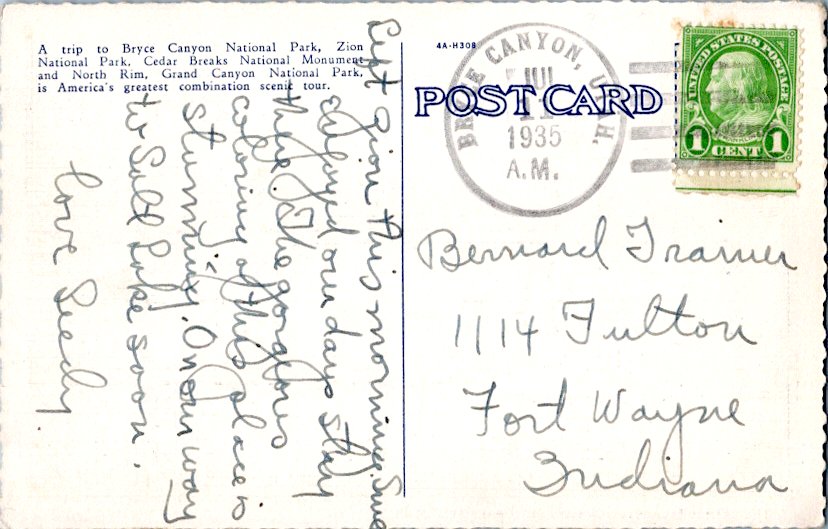 A trip to Bryce Canyon National Park, Zion
National Park, Cedar Breaks National Monument
and North Rim, Grand Canyon National Park,
is America's greatest combination scenic tour.
Left Zion this morning. Sure
enjoyed our days stay
there. The gorgeous
coloring of this place is
stunning. On our way
to Salt Lake soon.
love Seedy.
4A-H308
POST CARD
BRYCE CANYON, UTAH.
JUL
11
1935
A.M.
UNITED STATES POSTAGE
1 CENT 1
Bernard Tramer
1114 Fulton
Fort Wayne
Indiana